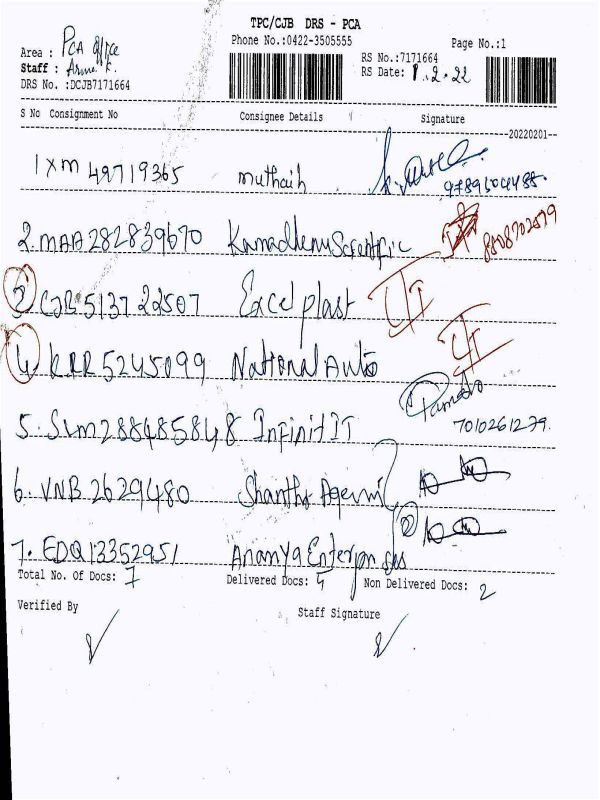 TPC/CJB DRS - PCA
Phone No.:0422-3505555 Page No.:1
Area : PCA office
RS No.:7171664
Staff : Arun K.
RS Date: 1.2.22
DRS No. :DCJB7171664
S No Consignment No Consignee Details Signature
20220201
1 XM 49719365 Muthaih
2. MAA 282839670 Kamadhenu Scientific 8808702579
3 CJB 513722507 Excel plast
4 KRR 5245099 National Auto
5. SLM 288485848 Infinit IT 7010261279.
6. VNB 2629480 Shanthi Agenci
7. EDQ 13352951 Ananya Enterprises
Total No. of Docs: 7 Delivered Docs: 5 Non Delivered Docs: 2
Verified By Staff Signature